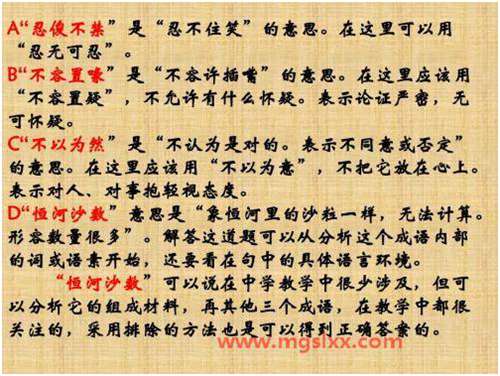 A“忍俊不禁”是“忍不住笑”的意思。在这里可以用
“忍无可忍”。
B“不容置喙”是“不容许插嘴”的意思。在这里应该用
“不容置疑”，不允许有什么怀疑。表示论证严密，无
可怀疑。
C“不以为然”是“不认为是对的。表示不同意或否定”
的意思。在这里应该用“不以为意”，不把它放在心上。
表示对人、对事抱轻视态度。
D“恒河沙数”意思是“象恒河里的沙粒一样，无法计算。
形容数量很多”。解答这道题可以从分析这个成语内部
的词或语素开始，还要看在句中的具体语言环境。
“恒河沙数”可以说在中学教学中很少涉及，但可
以分析它的组成材料，再其他三个成语，在教学中都很
关注的，采用排除的方法也是可以得到正确答案的。
www.mgslxx.com